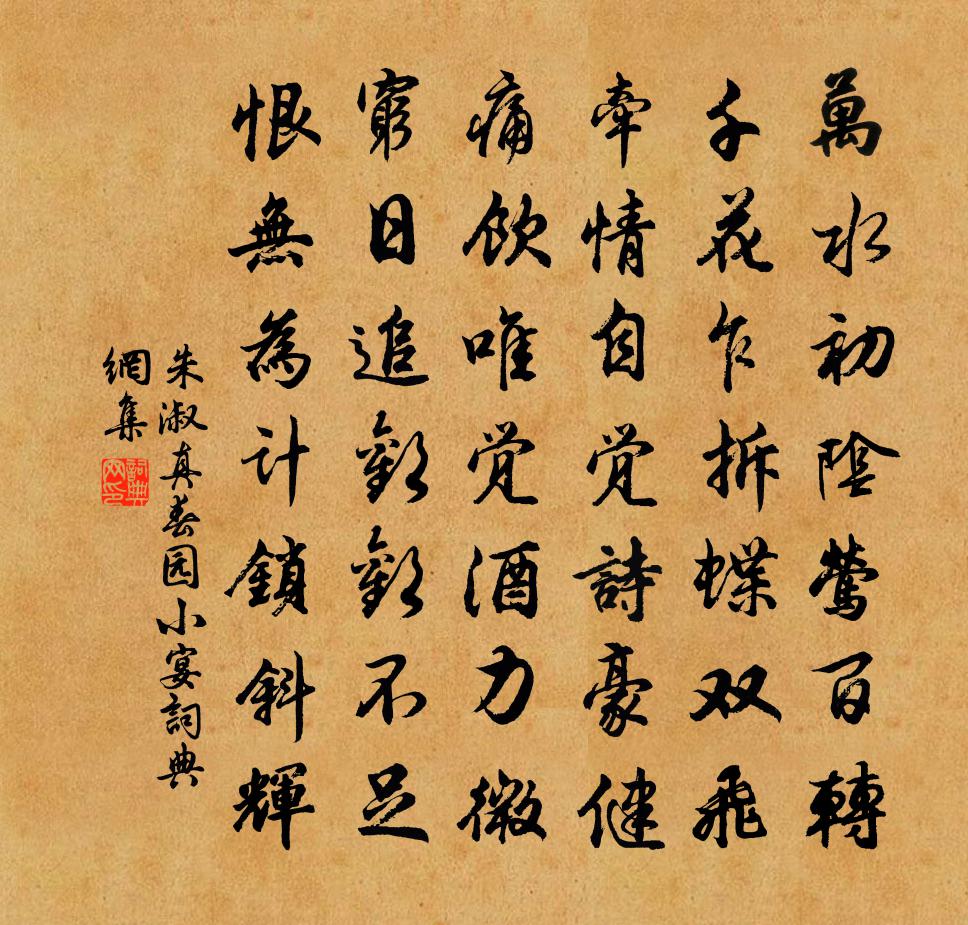 萬水初陰莺百轉
千花乍拆蝶双飛
牽情自觉詩豪健
痛飲唯觉酒力微
窮日追歡歡不足
恨無為计鎖斜輝
朱淑真春园小宴詞典
網集
詞典
网印